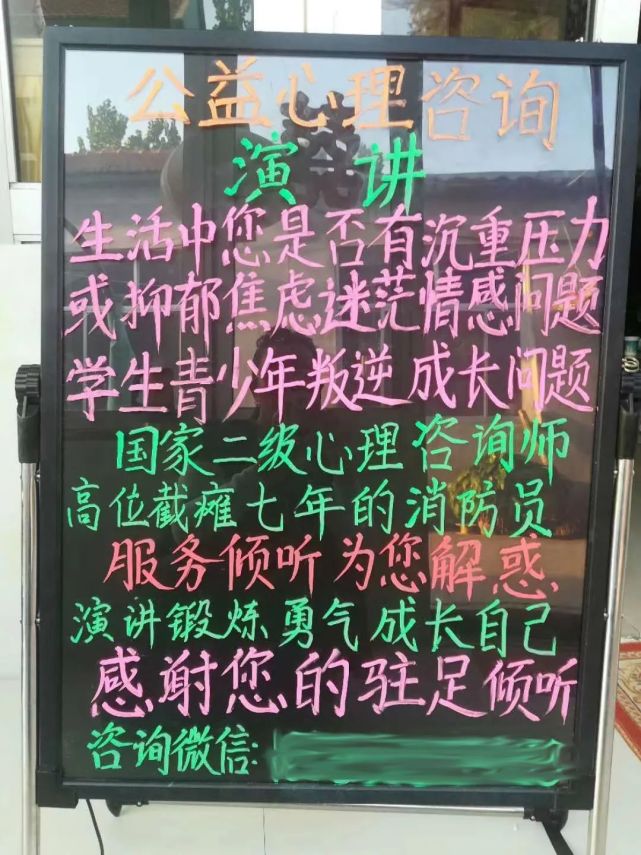 公益心理咨询
演讲
生活中您是否有沉重压力
或抑郁焦虑迷茫情感问题
学生青少年叛逆成长问题
国家二级心理咨询师
高位截瘫七年的消防员
服务倾听为您解惑
演讲锻炼勇气成长自己
感谢您的驻足倾听
咨询微信: